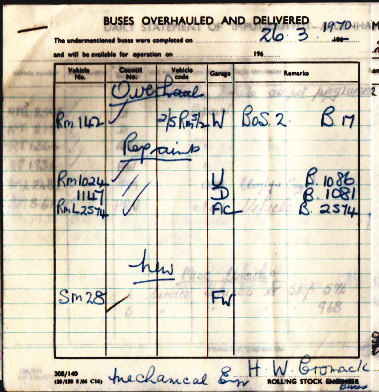 BUSES OVERHAULED AND DELIVERED
26.3.1970
The undermentioned buses were completed on 196
and will be available for operation on 196
Vehicle No. Council No. Vehicle code Garage Remarks
Overhaul
RM 142 2/5 RM5/2 W BOS.2 B.17
Repaints
RM1024 U B.1086
1147 D B.1081
RML2574 AC B.2574
New
SM28 FW
308/140 H.W. Cromack
Mechanical Eng ROLLING STOCK ENGINEER